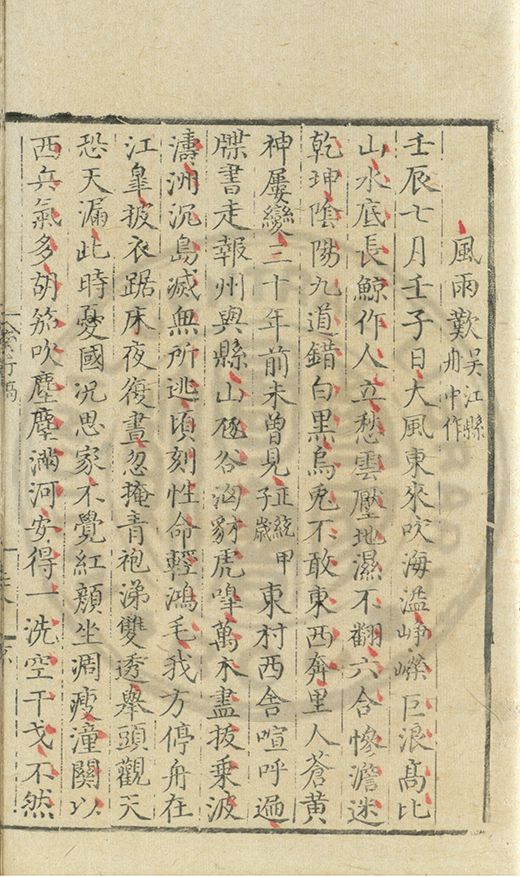 風雨歎吳江縣舟中作
壬辰七月壬子日大風東來吹海溢崢嶸巨浪高比
山水底長鯨作人立愁雲壓地濕不翻六合慘澹迷
乾坤陰陽九道錯白黑烏兔不敢東西奔里人蒼黃
神屢變三十年前未曾見正統甲子歲東村西舍喧呼遍
牒書走報州與縣山豗谷洶豺虎嘷萬木盡拔乘波
濤洲沉島滅無所逃頃刻性命輕鴻毛我方停舟在
江皐披衣踞床夜復晝忽掩青袍涕雙透舉頭觀天
恐天漏此時憂國況思家不覺紅顏坐凋瘦潼關以
西兵氣多胡笳吹塵塵滿河安得一洗空干戈不然